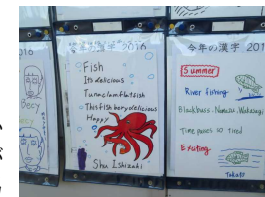 2016
Becy
今年の漢字 2016
Fish
Its delicious
Tuna clam flatfish
This fish bery delicious
Happy
Shu Ishizaki
今年の漢字 201
Summer
River fishing
Blackbass・Namazu・Wakasagi
Time passes so tired
Exciting
Takuto